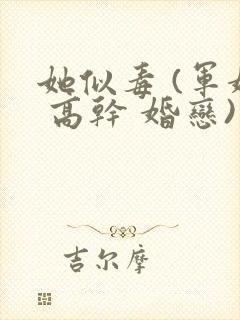 她似毒(軍
高幹 婚戀)
吉尔摩